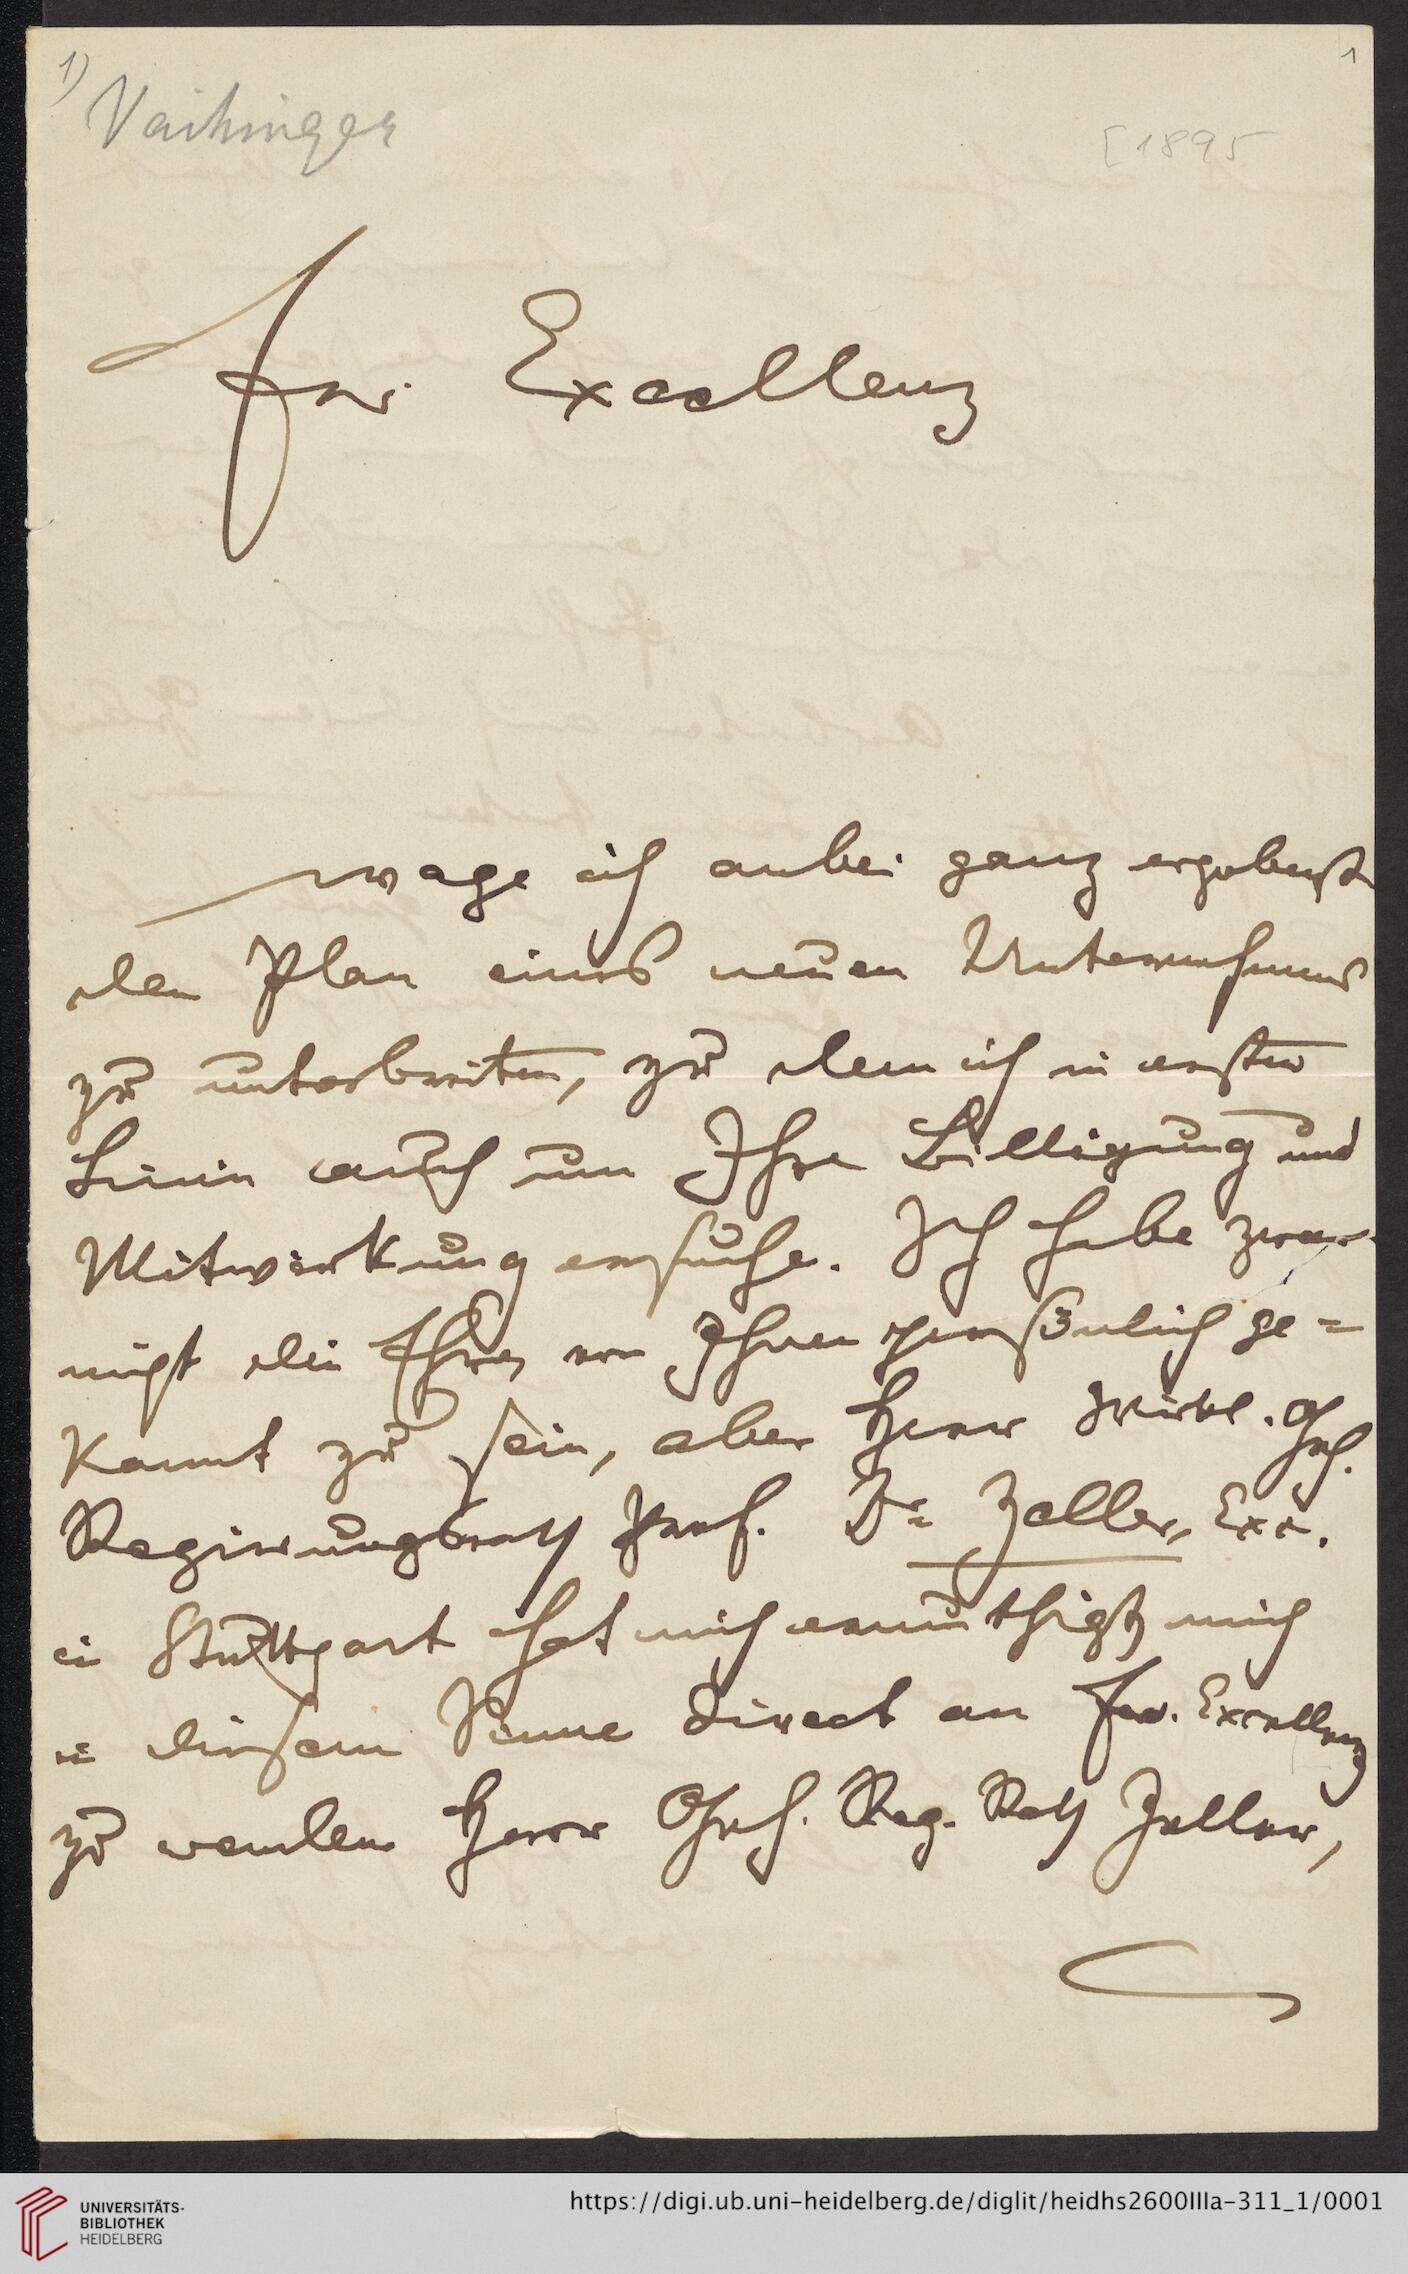 1)
1
Vaihinger
[1895
Ew. Excellenz
wage ich anbei ganz ergebenst
den Plan eines neuen Unternehmens
zu unterbreiten, zu dem ich in erster
Linie auch um Ihre Billigung und
Mitwirkung ersuche. Ich habe zwar
nicht die Ehre, von Ihnen persönlich ge=
kannt zu sein, aber Herr Wirkl. Geh.
Regierungsrath Prof. Dr. Zeller, Exc.
in Stuttgart hat mich ermuthigt, mich
in diesem Sinne direct an Ew. Excellenz
zu wenden. Herr Geh. Reg. Rath Zeller,
UNIVERSITÄTS-
BIBLIOTHEK
HEIDELBERG
https://digi.ub.uni-heidelberg.de/diglit/heidhs2600IIIa-311_1/0001